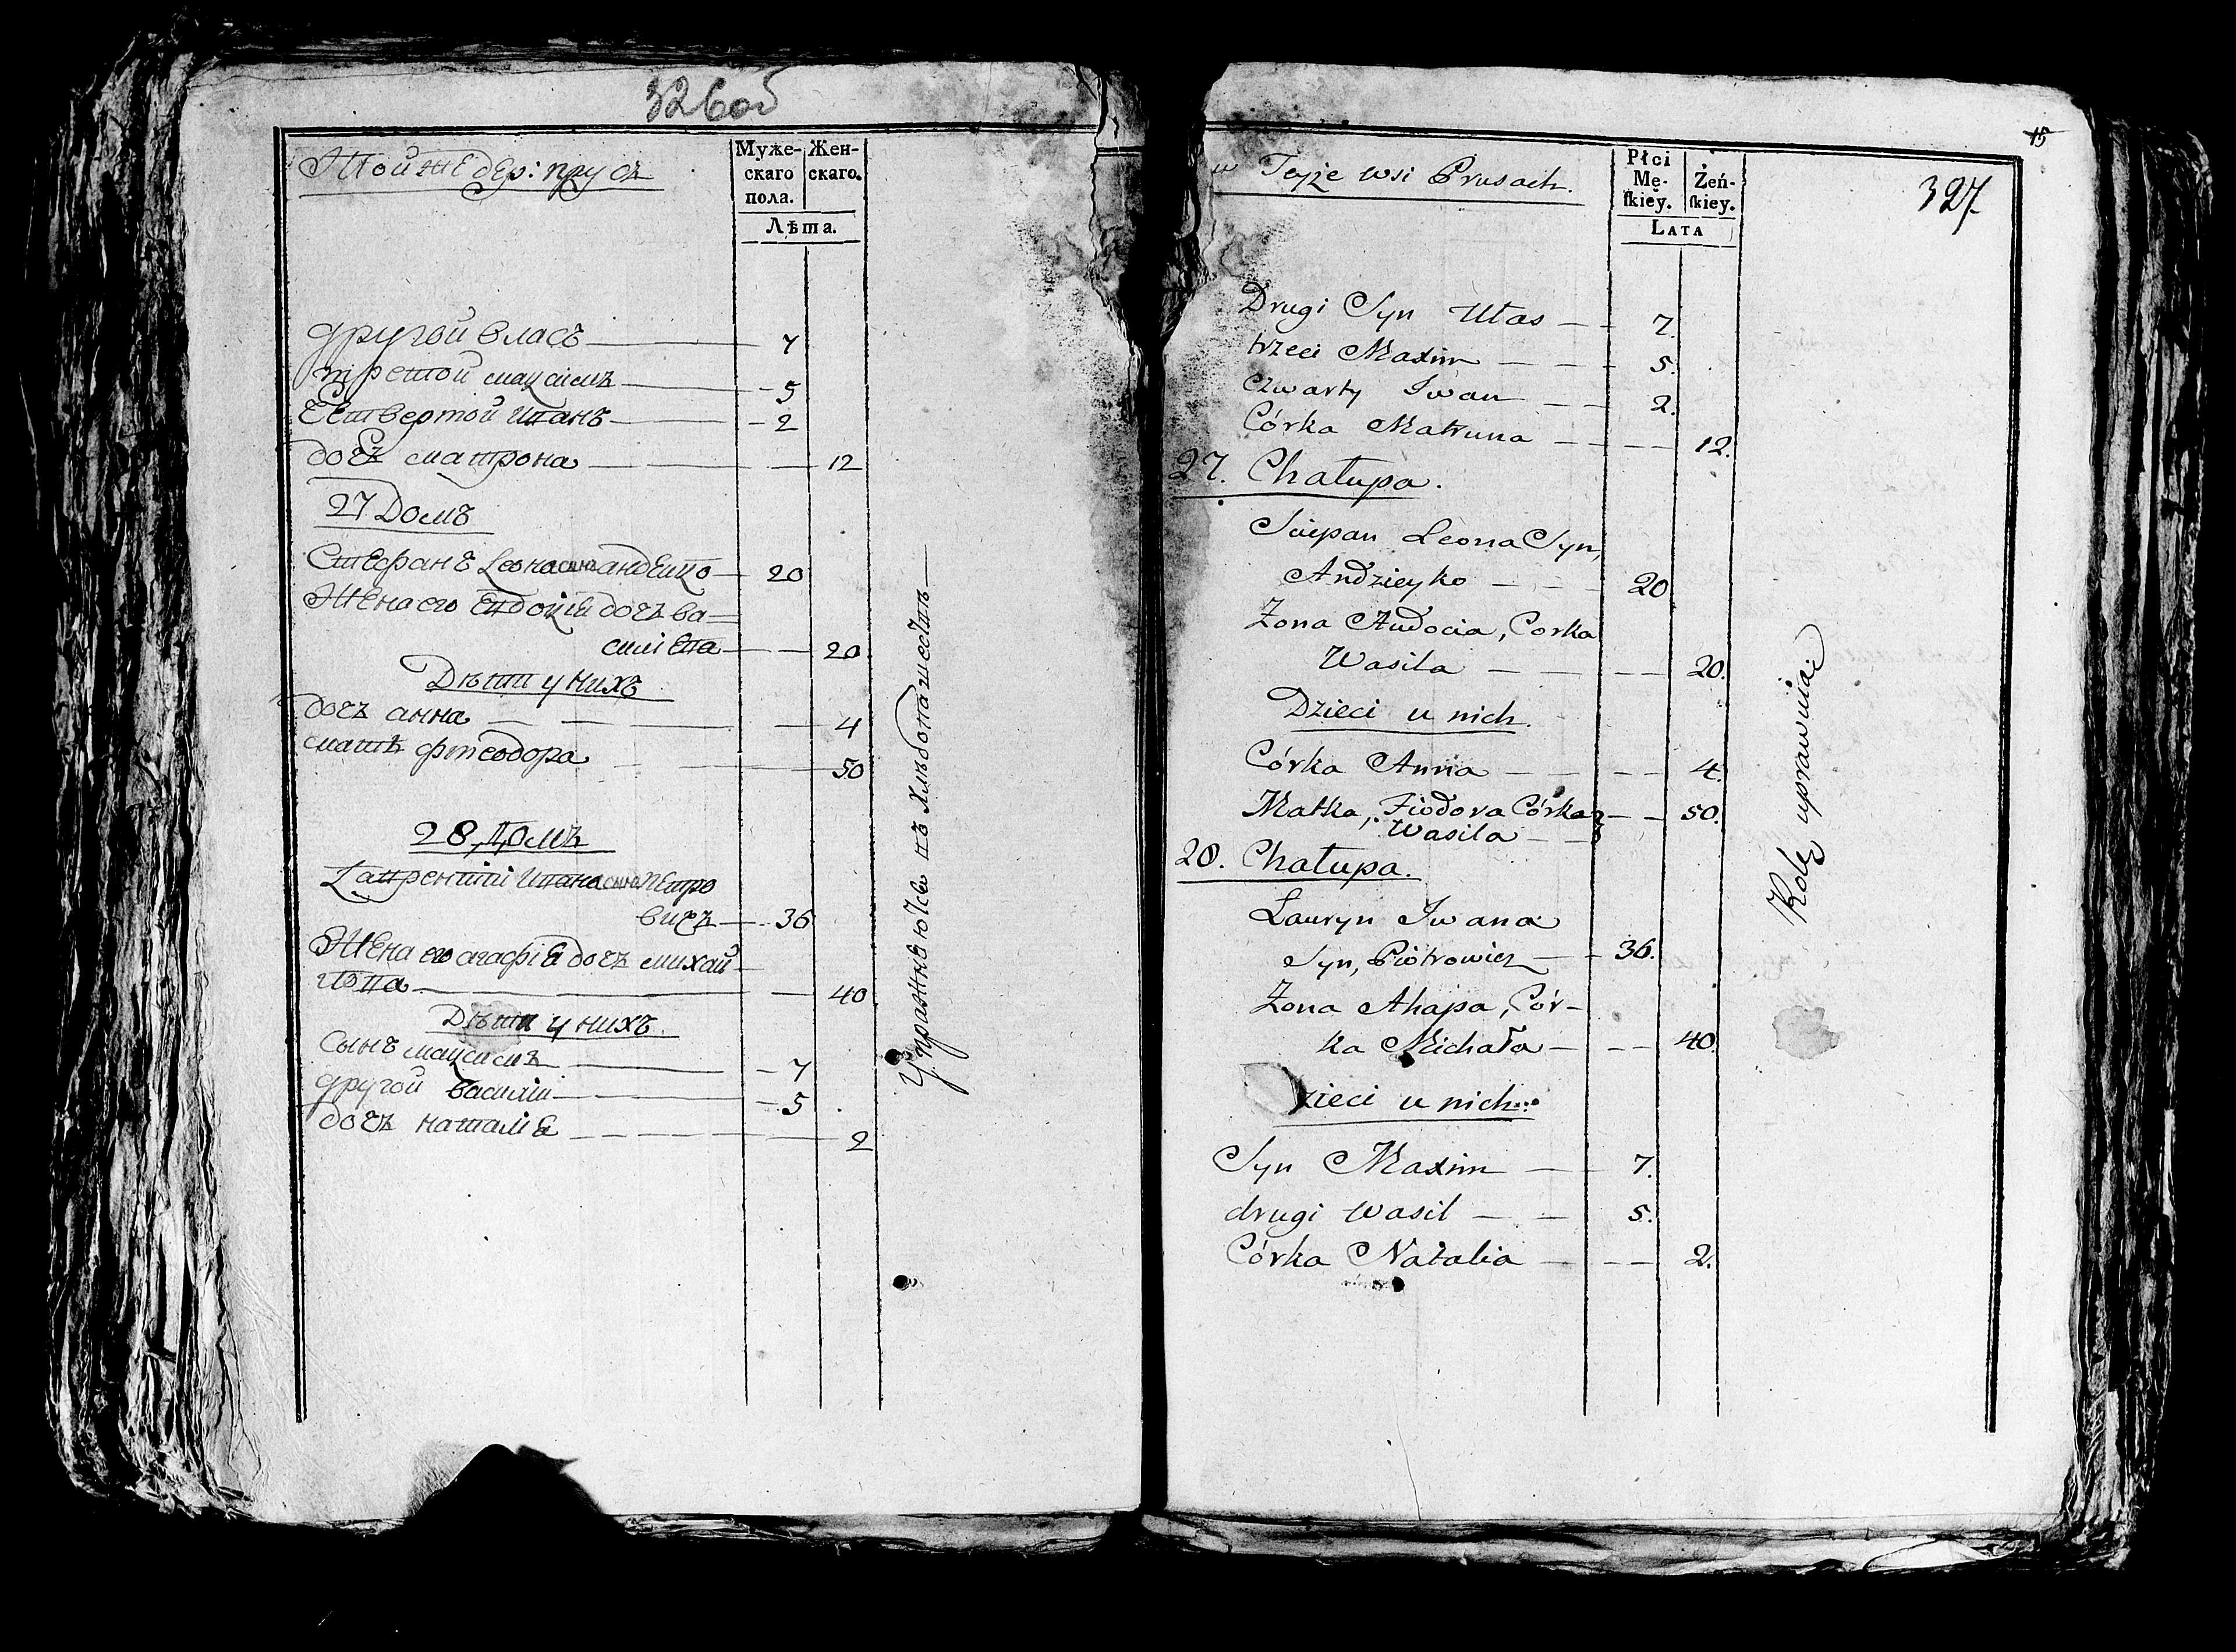 326об
Тойже дер: прусъ
Муже-
скаго
пола.
Жен-
скаго.
Лѣта.
другой власъ — 7
третой максимъ — 5
Четвертой иванъ — 2
дочъ матрона — 12
27 Домъ
Стефанъ Леона сынъ андейко — 20
Жена его Евдокія дочъ ва=
силіева — 20
Дѣти у нихъ
дочъ анна — 4
мать феодора — 50
28 Домъ
Лаврентій ивана сынъ петро
вичъ — 36
Жена его агафія дочъ михай
лова — 40
Дѣти у нихъ
Сынъ максимъ — 7
другой василій — 5
дочъ наталія — 2
Упражняются въ хлѣбопашествѣ
15
327.
w Teyże wsi Prusach.
Płci
Mę-
skiey.
Żeń-
skiey.
Lata
Drugi Syn Ułas — 7.
trzeci Maxim — 5.
czwarty Iwan — 2.
Córka Matruna — 12.
27. Chałupa.
Sciepan Leona Syn,
Andzieyko — 20
Żona Audocia, Corka
Wasila — 20.
Dzieci u nich.
Córka Anna — 4.
Matka, Fiodora Córka — 50.
Wasila —
28. Chałupa.
Lauryn Iwana
Syn, Piotrowicz — 36.
Żona Ahapa, Cór-
ka Michała — 40.
Dzieci u nich:
Syn Maxim — 7.
drugi Wasil — 5.
Córka Natalia — 2.
Rolę uprawuią